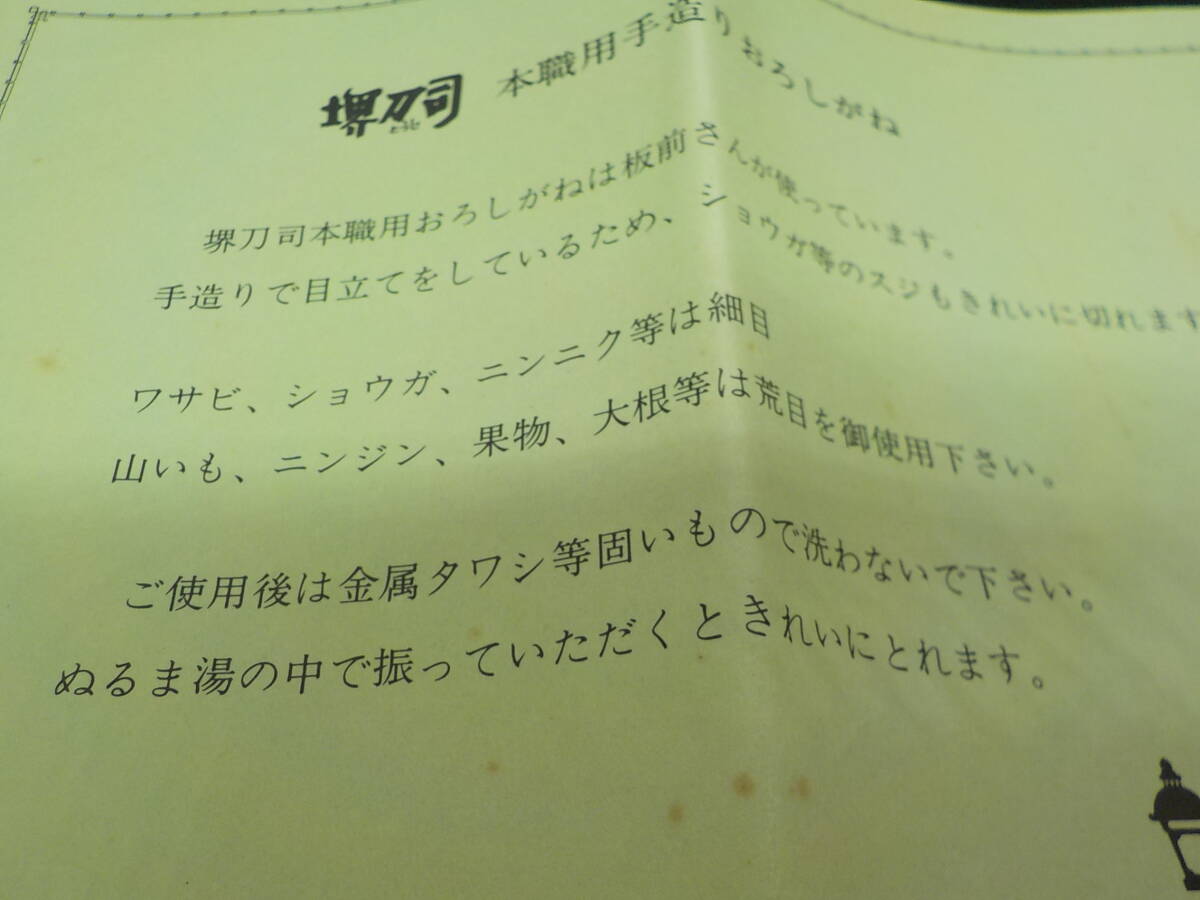 堺刀司 本職用手造りおろしがね
堺刀司本職用おろしがねは板前さんが使っています。
手造りで目立てをしているため、ショウガ等のスジもきれいに切れます
ワサビ、ショウガ、ニンニク等は細目
山いも、ニンジン、果物、大根等は荒目を御使用下さい。
ご使用後は金属タワシ等固いもので洗わないで下さい。
ぬるま湯の中で振っていただくときれいにとれます。